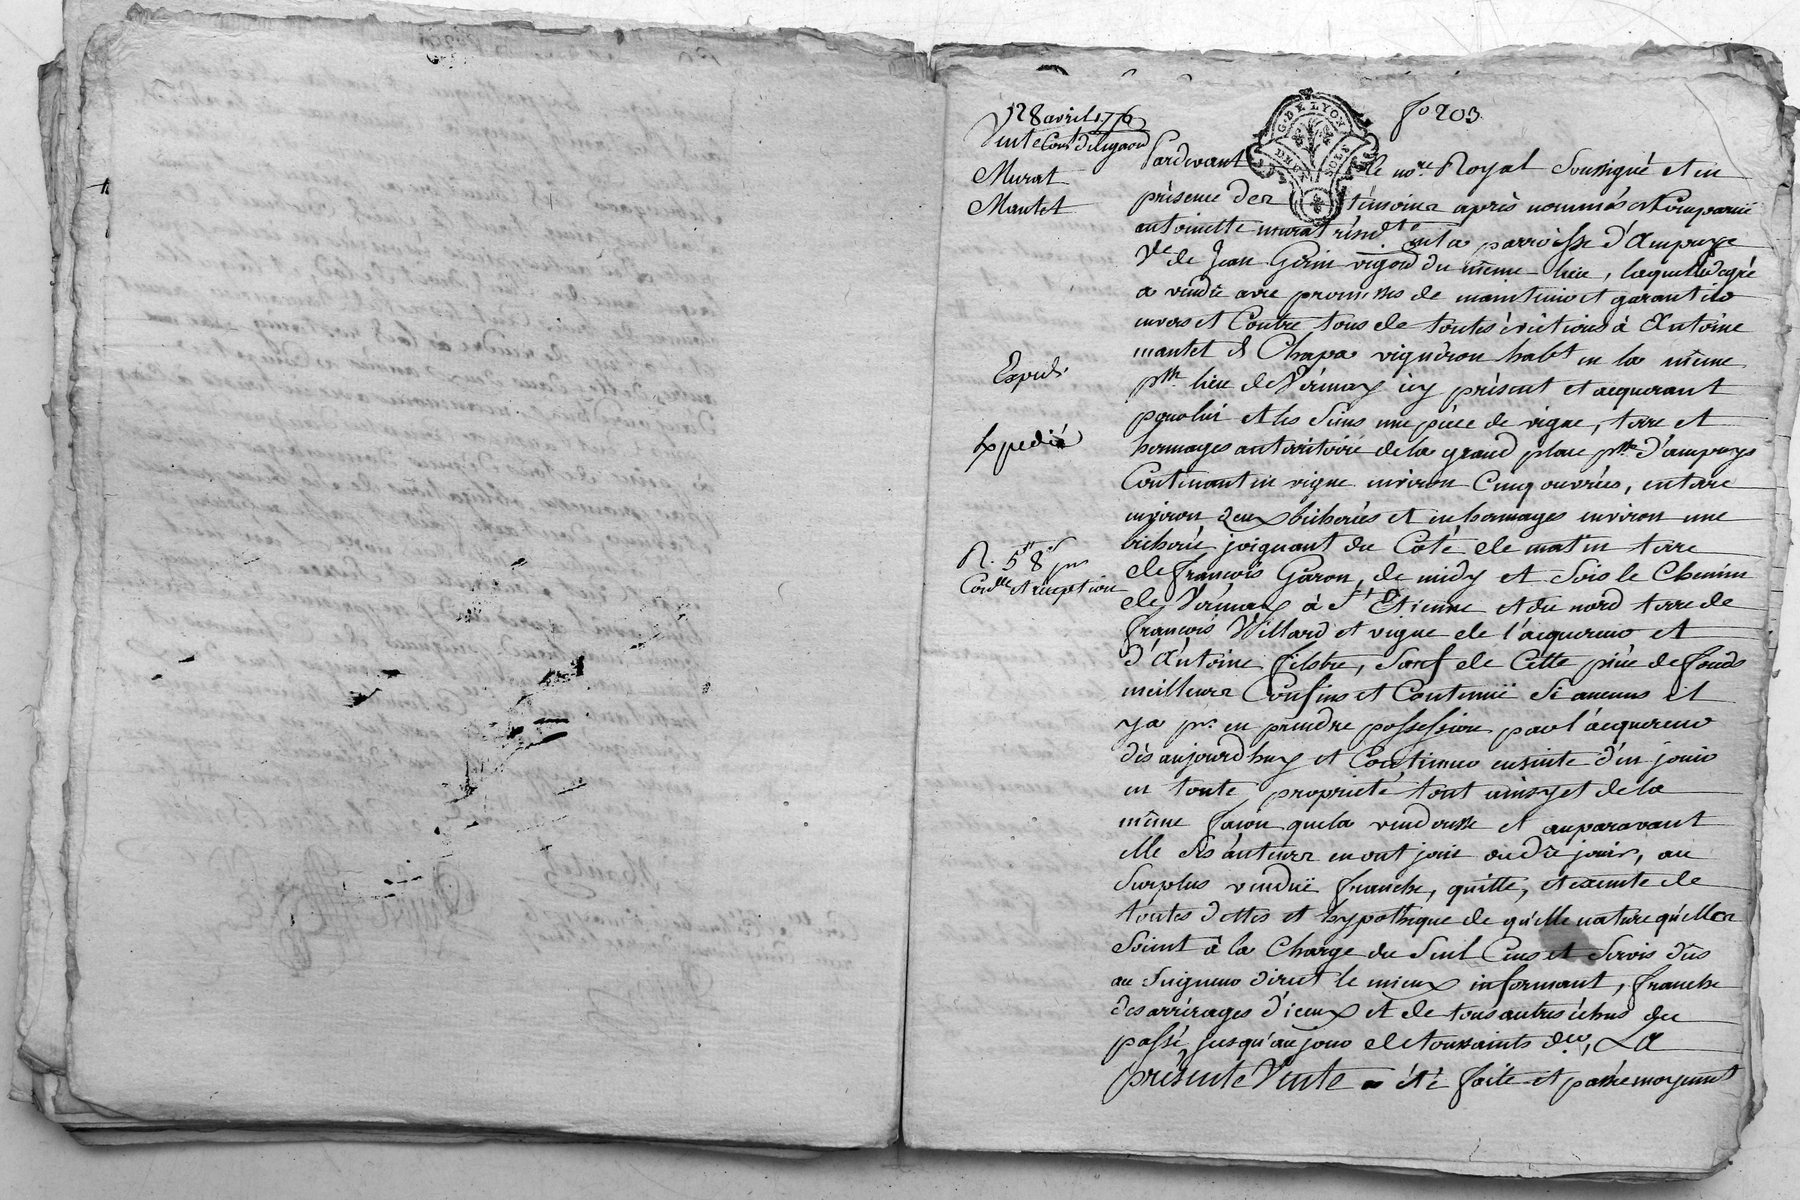 fo 203
28 avril 1776
Vente
Murat
Mantet
Expedié
R. 5# 8s
et reception
G. DE LYON
DEUX SOLS
Pardevant le nore. Royal Soussigné et en
présence des témoins après nommés est Comparüe
antoinette murat résidte. en la parroisse d'Ampuye
Ve de Jean Gérin vigon du même lieu, laquelle de gré
a vendu avec promesses de maintenir et garantir
envers et Contre tous de toutes évictions à Antoine
mantet dt Chapa vigneron habt en la même
psse lieu de Vérinay icy présent et acquerant
pour lui et les Siens une piéce de vigne, terre et
hermages au territoire de la grand place psse d'ampuys
Contenant en vigne environ Cinq ouvrées, en terre
environ deux bicherées et en hermages environ une
bicherée, joignant du Coté de matin terre
de françois Garon, de midy et Soir le Chemin
de Vérinay à St Etienne et du nord terre de
françois Villard et vigne de l'acquereur et
d'Antoine filstre, Sauf de Cette piéce de fonds
meilleurs Confins et Contenüe Si aucuns et
y a pr. en prendre possession par l'acquereur
dès aujourd'huy et Continuer ensuite d'en jouir
en toute propriété tout ainsy et de la
même façon que la venderesse et auparavant
elle Ses auteurs en ont joui ou dû jouir, au
Surplus vendüe franche, quitte, et exempte de
toutes dettes et hypotheque de quelle nature qu'elles
Soient à la Charge du Seul Cens et Servis dûs
au Seigneur direct le mieux informant, franche
des arrérages d'iceux et de tous autres échus du
passé, jusqu'au jour de toussaints der, La
présente Vente a été faite et passée moyennt